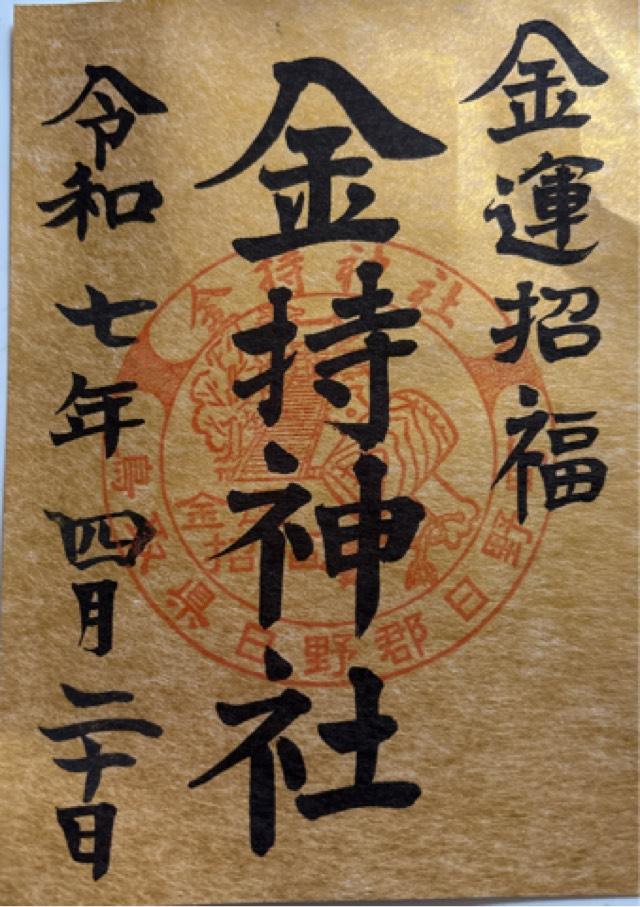 金運招福
金持神社
令和七年四月二十日
金持神社
鳥取県日野郡日野